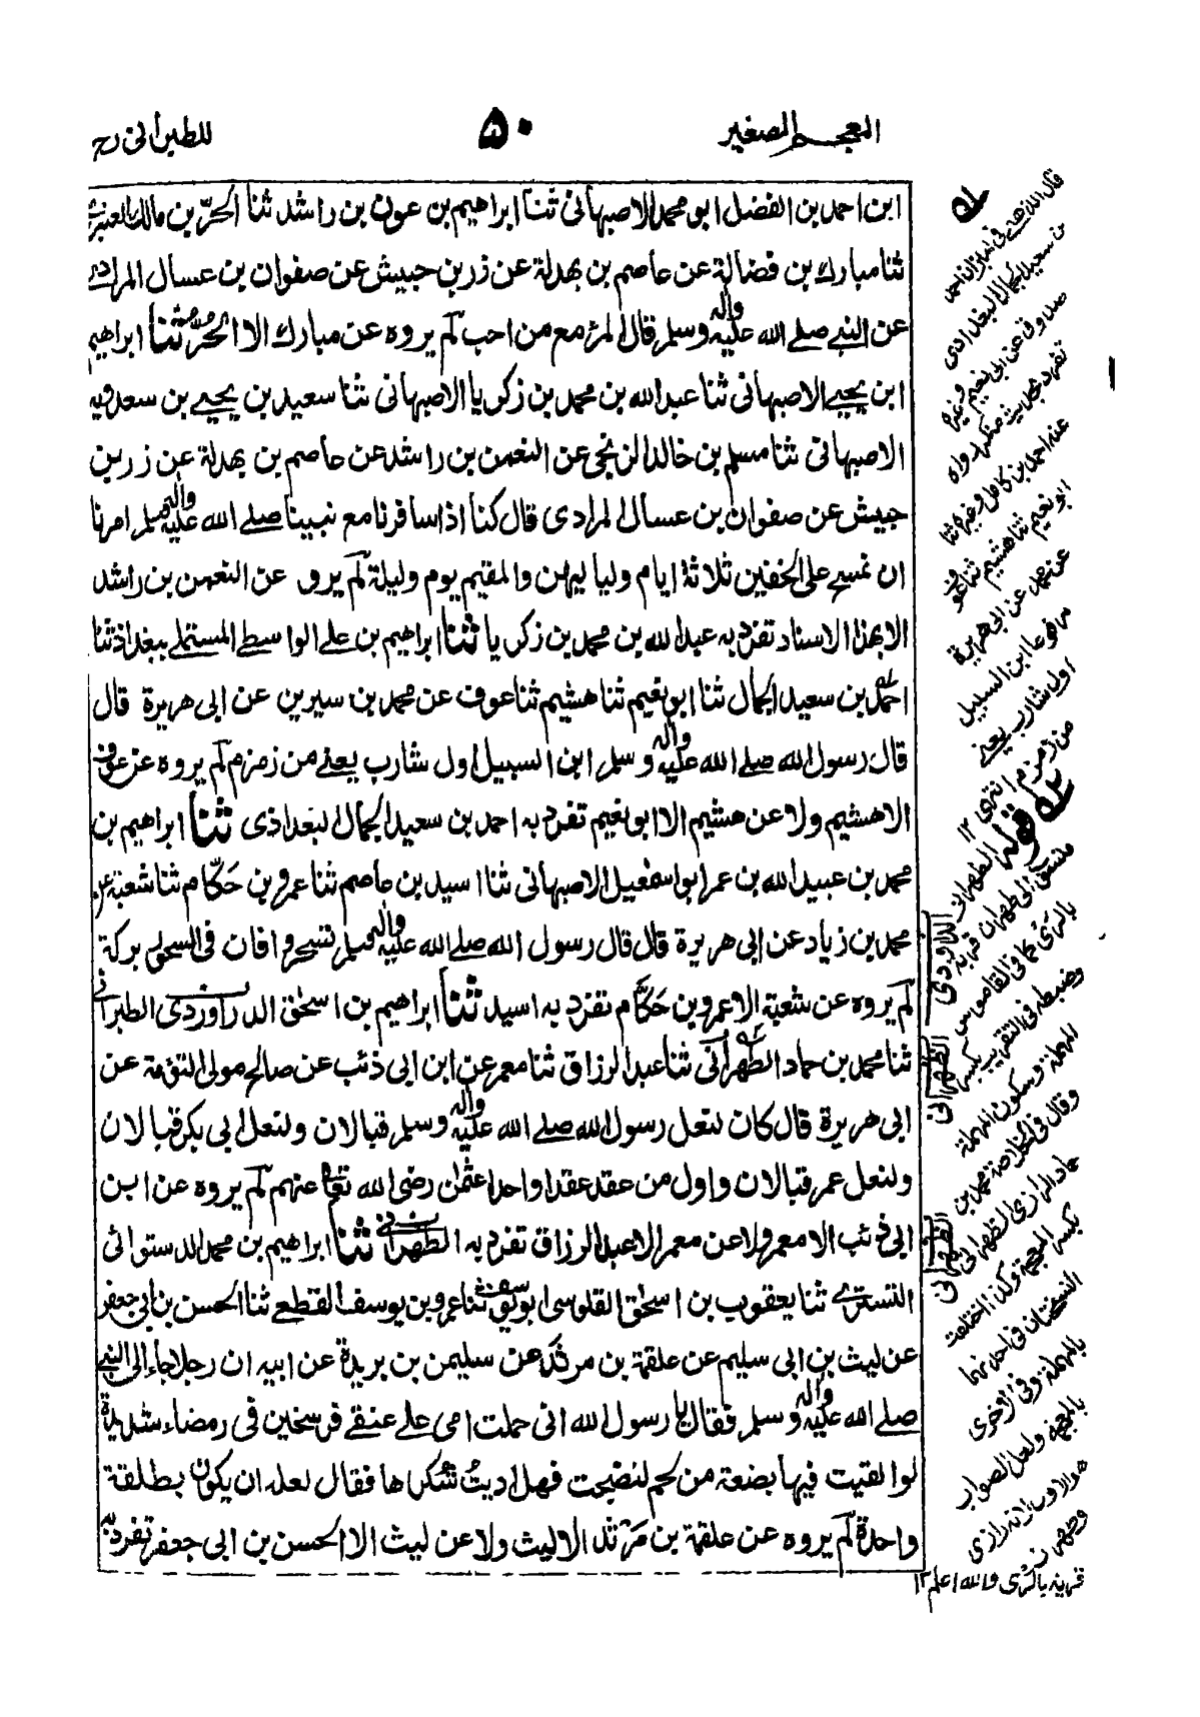 المعجم الصغير
٥٠
للطبرانى رح
ابن احمد بن الفضل ابو محمد الاصبهانى ثنا ابراهيم بن عون بن راشد ثنا الحرّ بن مالك العنبرى
ثنا مبارك بن فضالة عن عاصم بن بهدلة عن زر بن حبيش عن صفوان بن عسال المرادى
عن النبى صلى الله عليه وآله وسلم قال المرء مع من احب لم يروه عن مبارك الا الحرّ ثنا ابراهيم
ابن يحيى الاصبهانى ثنا عبد الله بن محمد بن زكريا الاصبهانى ثنا سعيد بن يحيى بن سعدويه
الاصبهانى ثنا مسلم بن خالد الزنجى عن النعمن بن راشد عن عاصم بن بهدلة عن زر بن
حبيش عن صفوان بن عسال المرادى قال كنا اذا سافرنا مع نبينا صلى الله عليه وآله وسلم امرنا
ان نمسح على الخفين ثلاثة ايام ولياليهن والمقيم يوم وليلة لم يرو عن النعمن بن راشد
الا بهذا الاسناد تفرد به عبد الله بن محمد بن زكريا ثنا ابراهيم بن على الواسطى المستملى ببغداد ثنا
احمد بن سعيد الجمال ثنا ابو نعيم ثنا هشيم ثنا عوف عن محمد بن سيرين عن ابى هريرة قال
قال رسول الله صلى الله عليه وآله وسلم ابن السبيل اول شارب يعنى من زمزم لم يروه عن عوف
الا هشيم ولا عن هشيم الا ابو نعيم تفرد به احمد بن سعيد الجمال البغداذى ثنا ابراهيم بن
محمد بن عبيد الله بن عمر ابو اسمعيل الاصبهانى ثنا اسيد بن عاصم ثنا عمرو بن حَكّام ثنا شعبة عن
محمد بن زياد عن ابى هريرة قال قال رسول الله صلى الله عليه وآله وسلم تسحروا فان فى السحور بركة
لم يروه عن شعبة الا عمرو بن حَكّام تفرد به اسيد ثنا ابراهيم بن اسحٰق الدراوردى الطبرانى
ثنا محمد بن حماد الطهرانى ثنا عبد الرزاق ثنا معمر عن ابن ابى ذئب عن صالح مولى التوءمة عن
ابى هريرة قال كان لنعل رسول الله صلى الله عليه وآله وسلم قبالان ولنعل ابى بكر قبالان
ولنعل عمر قبالان واول من عقد عقدا واحدا عثمٰن رضى الله تعالى عنهم لم يروه عن ابن
ابى ذئب الا معمر ولا عن معمر الا عبد الرزاق تفرد به الطهرانى ثنا ابراهيم بن محمد الدستوائى
التسترى ثنا يعقوب بن اسحٰق القلوسى ابو يوسف ثنا عمرو بن يوسف القطعى ثنا الحسن بن ابى جعفر
عن ليث بن ابى سليم عن علقمة بن مرثد عن سليمن بن بريدة عن ابيه ان رجلا جاء الى النبى
صلى الله عليه وآله وسلم فقال يا رسول الله انى حملت امى على عنقى فرسخين فى رمضاء شديدة
لو القيت فيها بضعة من لحم لنضجت فهل اديت شكرها فقال لعله ان يكون بطلقة
واحدة لم يروه عن علقمة بن مَرْثد الا ليث ولا عن ليث الا الحسن بن ابى جعفر تفرد به
قال الذهبى فى الميزان احمد
بن سعيد الجمال البغدادى
صدوق عن ابى نعيم وغيره
تفرد بحديث منكر رواه
عنه احمد بن كامل وغيره ثنا
ابو نعيم ثنا هشيم ثنا عوف
عن محمد عن ابى هريرة
مرفوعا ابن السبيل
اول شارب يعنى
من زمزم انتهى ١٢
قوله الطهرانى
منسوب الى طهران قرية
بالرى كما فى القاموس
وضبطه فى التقريب بكسر
المهملة وسكون المهملة
وقال فى الخلاصة محمد بن
حماد الرازى الظهرانى
بكسر المعجمة وكذا اختلفت
النسختان فى احدٰهما
بالمهملة وفى الاخرى
بالمعجمة ولعل الصواب
هو الاول لانه رازى
وطهران
قرية بالرى والله اعلم ١٢
الطهرانى
الظهرانى